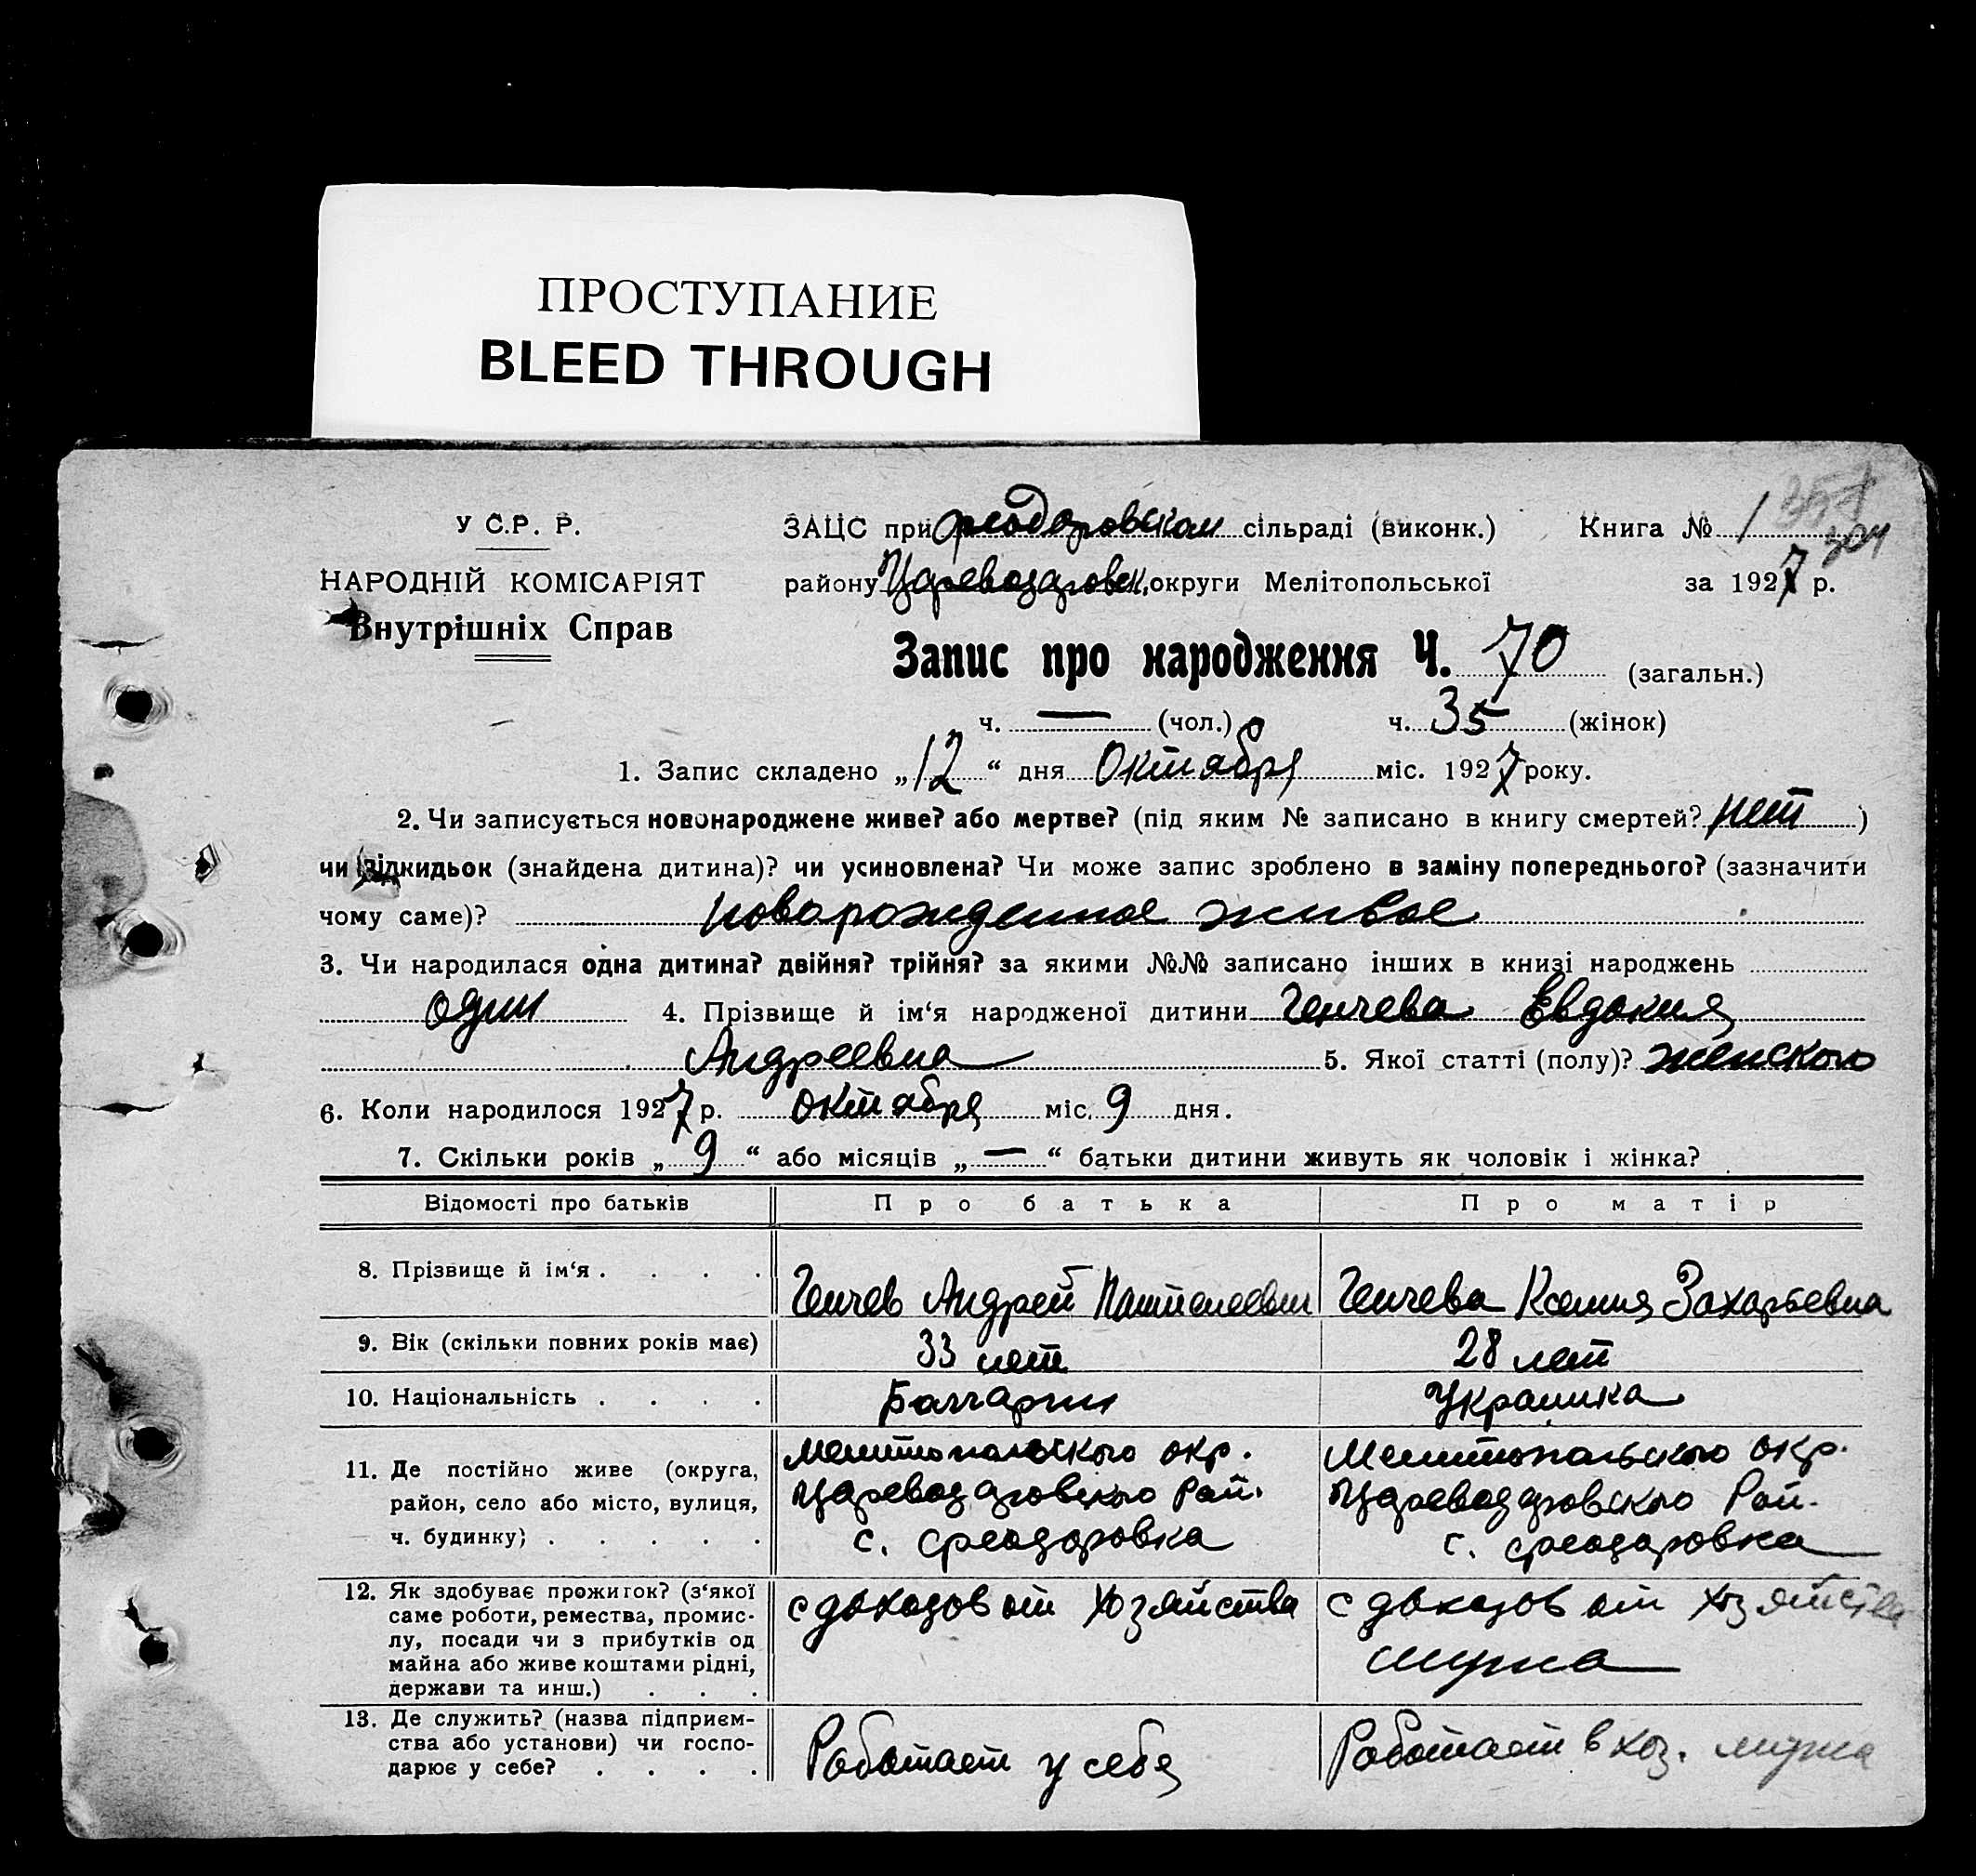 ПРОСТУПАНИЕ
BLEED THROUGH
357
304
У С.Р. Р.
НАРОДНІЙ КОМІСАРІЯТ
Внутрішніх Справ
ЗАЦС при Феодоровском сільраді (виконк.) Книга № 1
району Царевоздговск. округи Мелітопольської за 1927 р.
Запис про народження Ч. 70 (загальн.)
ч. — (чол.) ч. 35 (жінок)
1. Запис складено „12“ дня Октября міс. 1927 року.
2. Чи записується новонароджене живе? або мертве? (під яким № записано в книгу смертей? нет)
чи підкидьок (знайдена дитина)? чи усиновлена? Чи може запис зроблено в заміну попереднього? (зазначити
чому саме)? новорожденное живое
3. Чи народилася одна дитина? двійня? трійня? за якими №№ записано інших в книзі народжень
один 4. Прізвище й ім‘я народженої дитини Генчева Евдокия
Андреевна 5. Якої статті (полу)? женского
6. Коли народилося 1927 р. октября міс. 9 дня.
7. Скільки років „9“ або місяців „—“ батьки дитини живуть як чоловік і жінка?
Відомості про батьків Про батька Про матір
8. Прізвище й ім‘я . . . . Генчев Андрей Пантелеевич Генчева Ксения Захарьевна
9. Вік (скільки повних років має) 33 лет 28 лет
10. Національність . . . . Болгарин Украинка
11. Де постійно живе (округа, Мелитопольского окр. Мелитопольского окр.
район, село або місто, вулиця, Рай. Рай.
ч. будинку) . . . . . с. Феодоровка с. Феодоровка
12. Як здобуває прожиток? (з‘якої с доходов от хозяйства с доходов от хозяйства
саме роботи, ремества, промис-
лу, посади чи з прибутків од мужа
майна або живе коштами рідні,
держави та инш.) . . .
13. Де служить? (назва підприєм-
ства або установи) чи госпо- Работает у себя Работает в хоз. мужа
дарює у себе? . . . .